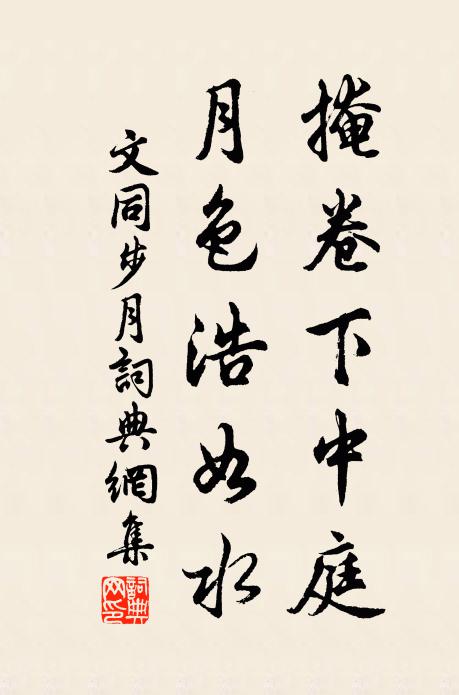 掩卷下中庭
月色浩如水
文同步月詞典網集
詞典网印